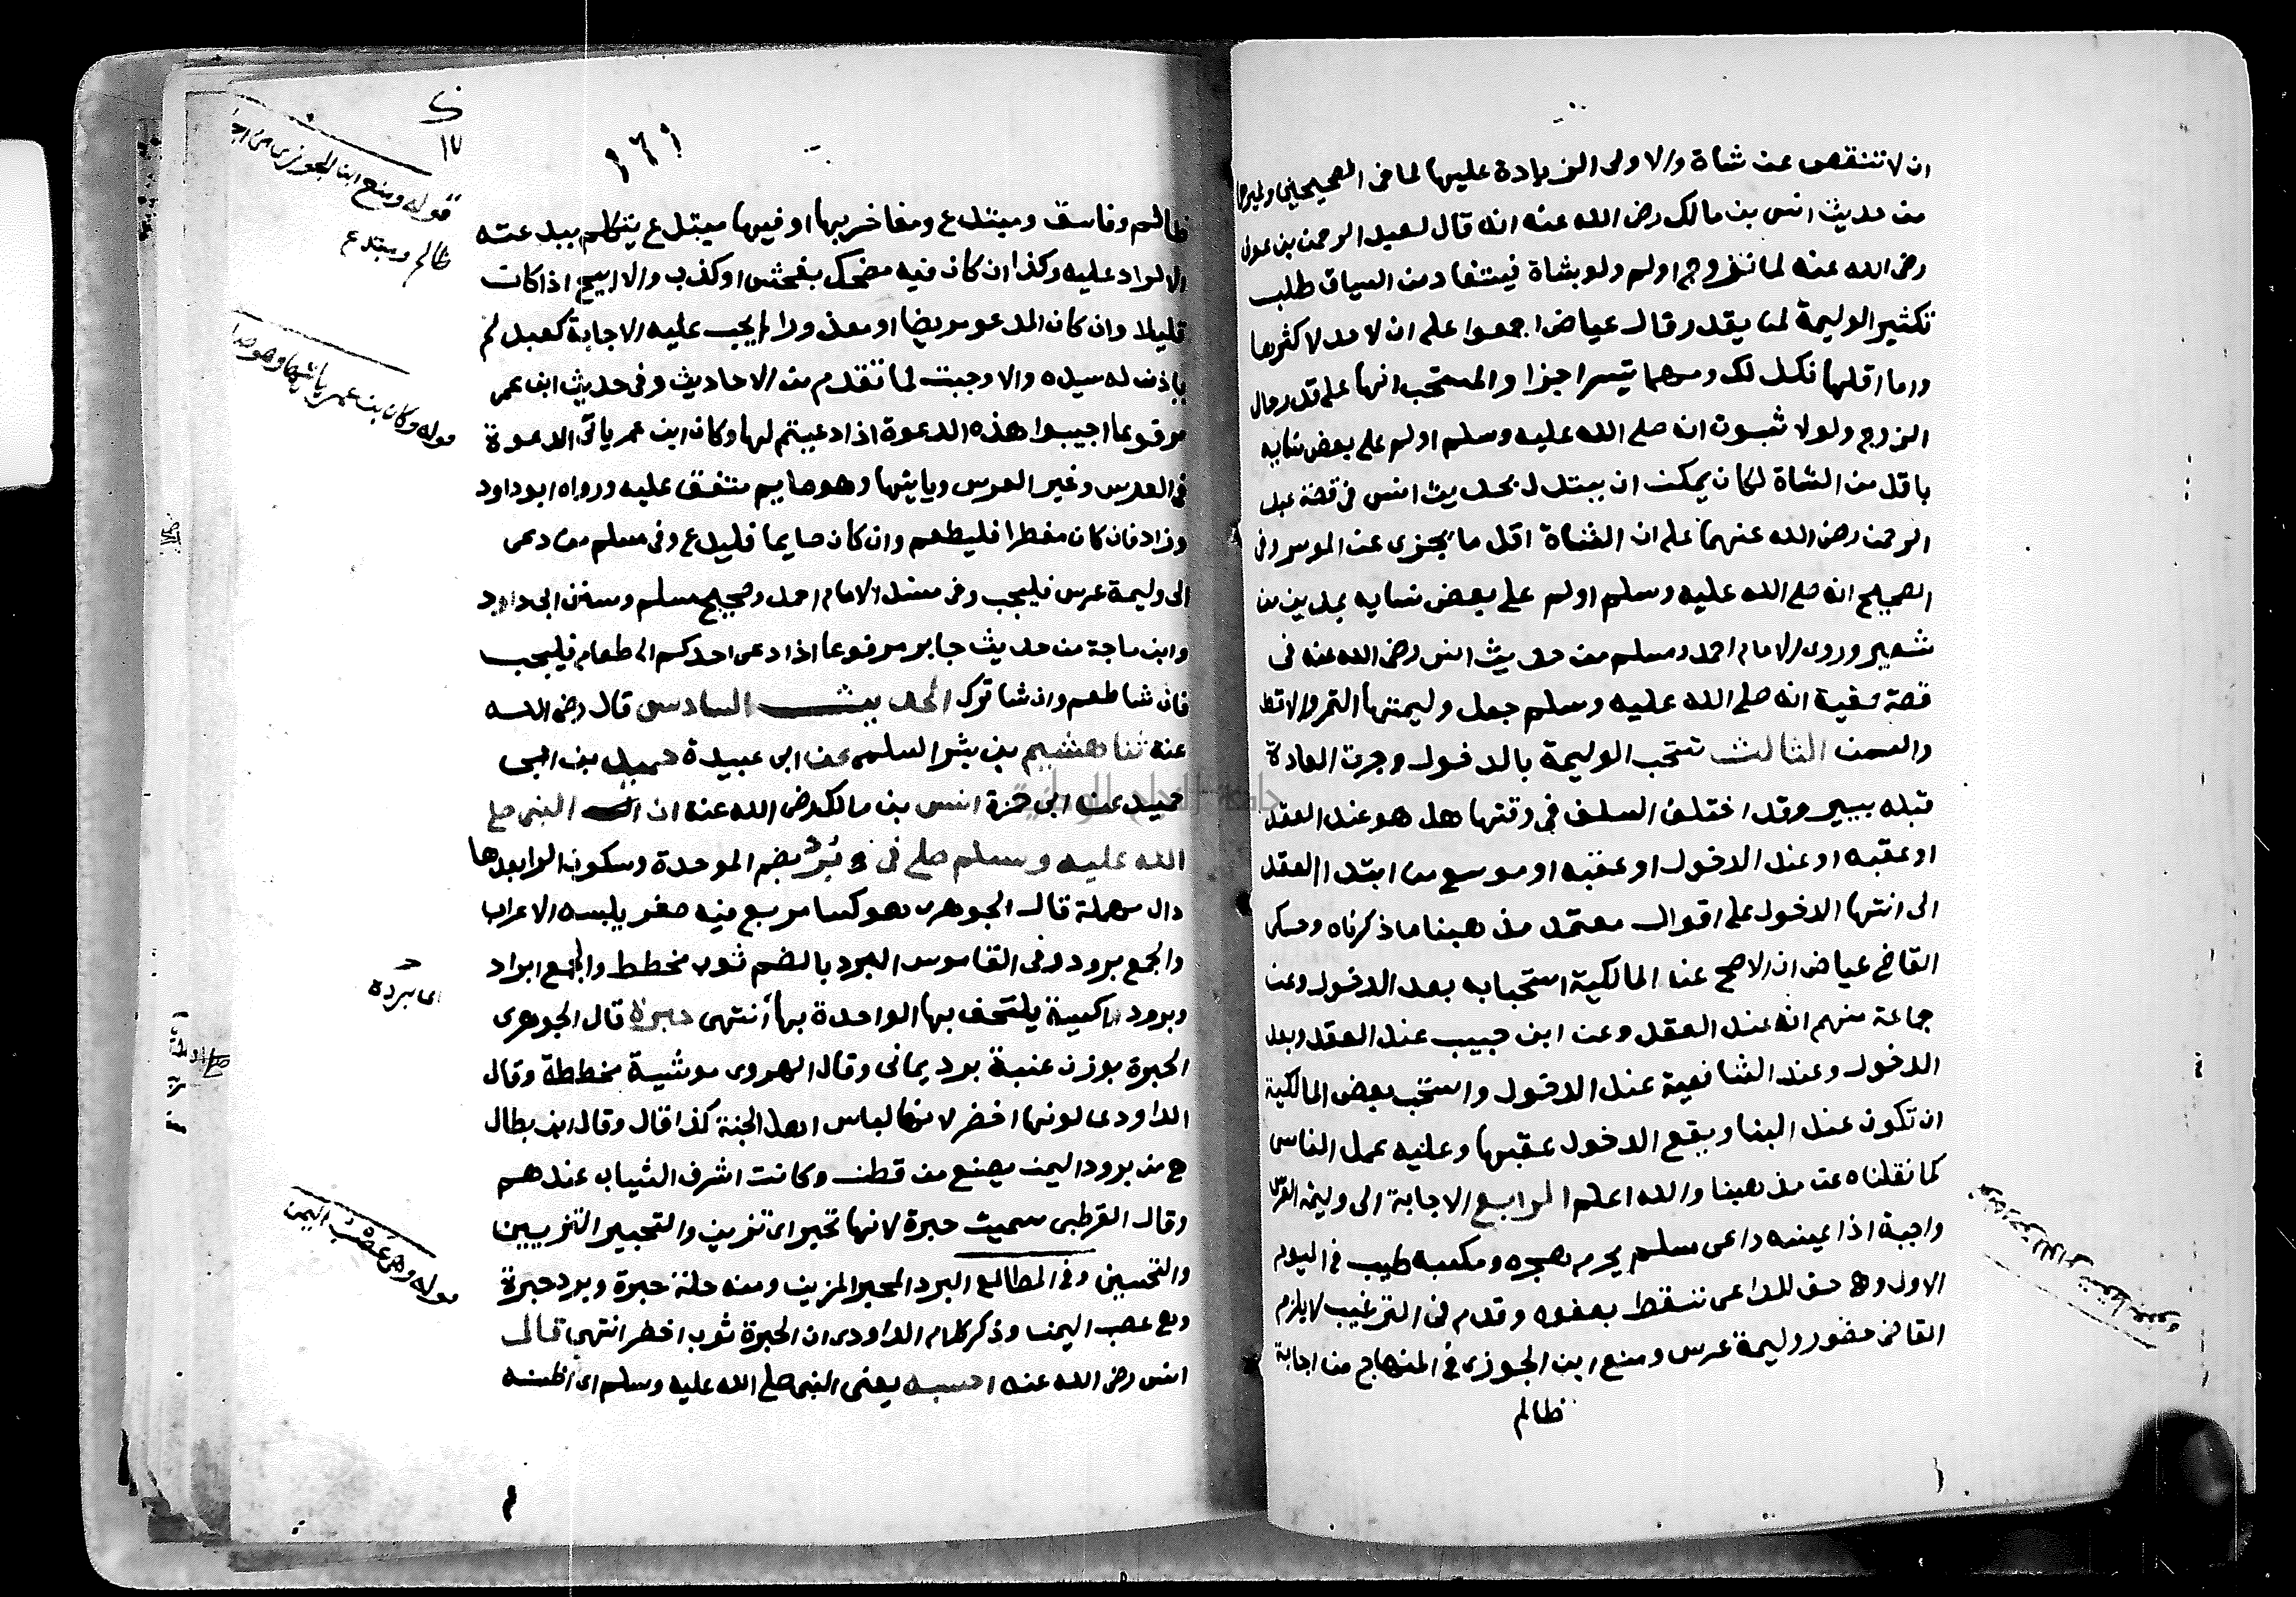 ان لا تنقص عن شاة والاولى الزيادة عليها لما فى الصحيحين وغيرهما
من حديث انس بن مالك رضى الله عنه انه قال لعبد الرحمن بن عوف
رضى الله عنه لما تزوج اولم ولو بشاة فيستفاد من السياق طلب
تكثير الوليمة لمن يقدر وقال عياض اجمعوا على ان لا حد لاكثرها
وما اقلها فكذلك ومهما تيسر اجزا والمستحب انها على قدر حال
الزوج ولولا ثبوت انه صلى الله عليه وسلم اولم على بعض نسايه
باقل من الشاة لكان يمكن ان يستدل بحديث انس فى قصة عبد
الرحمن رضى الله عنهما على ان الشاة اقل ما يجزى عن الموسر وفى
الصحيح انه صلى الله عليه وسلم اولم على بعض نسايه بمدين من
شعير وروى الامام احمد ومسلم من حديث انس رضى الله عنه فى
قصة صفية انه صلى الله عليه وسلم جعل وليمتها التمر والاقط
والسمن الثالث تستحب الوليمة بالدخول وجرت العادة
قبله بيسير وقد اختلف السلف فى وقتها هل هو عند العقد
او عقبه او عند الدخول او عقبه او موسع من ابتدا العقد
الى انتها الدخول على اقوال معتمد مذهبنا ما ذكرناه وحكى
القاضى عياض ان الاصح عند المالكية استحبابه بعد الدخول وعن
جماعة منهم انه عند العقد وعن ابن حبيب عند العقد وبعد
الدخول وعند الشافعية عند الدخول واستحب بعض المالكية
ان تكون عند البنا ويقع الدخول عقبها وعليه عمل الناس
كما نقلناه عن مذهبنا والله اعلم الرابع الاجابة الى وليمة العرس
واجبة اذا عينه داعى مسلم يحرم هجره ومكسبه طيب فى اليوم
الاول وهى حق للداعى تسقط بعفوه وقدم فى الترغيب لا يلزم
القاضى حضور وليمة عرس ومنع ابن الجوزى فى المنهاج من اجابة
ظالم
١٦١
١٧
ظالم وفاسق ومبتدع ومفاخر بها او فيها مبتدع يتكلم ببدعته
الا لراد عليه وكذا ان كان فيه مضحك بفحش او كذب والا ابيح اذا كان
قليلا وان كان المدعو مريضا او معذورا لم يجب عليه الاجابة كعبد لم
ياذن له سيده والا وجبت لما تقدم من الاحاديث وفى حديث ابن عمر
مرفوعا اجيبوا هذه الدعوة اذا دعيتم لها وكان ابن عمر ياتى الدعوة
فى العرس وغير العرس وياتيها وهو صايم متفق عليه ورواه ابو داود
وزاد فان كان مفطرا فليطعم وان كان صايما فليدع وفى مسلم من دعى
الى وليمة عرس فليجب وفى مسند الامام احمد وصحيح مسلم وسنن ابى داود
وابن ماجة من حديث جابر مرفوعا اذا دعى احدكم الى طعام فليجب
فان شا طعم وان شا ترك الحديث السادس قال رضى الله
عنه ثنا هشيم بن بشر السلمى عن ابى عبيدة حميد بن ابى
حميد عن ابى حمزة انس بن مالك رضى الله عنه ان النبى صلى
الله عليه وسلم صلى فى برد بضم الموحدة وسكون الرا بعدها
دال مهملة قال الجوهرى هو كسا مربع فيه صغر يلبسه الاعراب
والجمع برود وفى القاموس البرد بالضم ثوب مخطط والجمع ابراد
وبرود واكسية يلتحف بها الواحدة بها انتهى حبرة قال الجوهرى
الحبرة بوزن عنبة برد يمانى وقال الهروى موشية مخططة وقال
الداودى لونها اخضر لانها لباس اهل الجنة كذا قال وقال ابن بطال
هى من برود اليمن يصنع من قطن وكانت اشرف الثياب عندهم
وقال القرطبى سميت حبرة لانها تحبر اى تزين والتحبير التزيين
والتحسين وفى المطالع البرد المحبر المزين ومنه حلة حبرة وبرد حبرة
وهى عصب اليمن وذكر كلام الداودى ان الحبرة ثوب اخضر انتهى قال
انس رضى الله عنه احسبه يعنى النبى صلى الله عليه وسلم اى اظنه
قوله ومنع ابن الجوزى من اجا
ظالم ومبتدع
قوله وكان ابن عمر ياتيها وهو صا
اى بردة
قوله وهى عصب اليمن